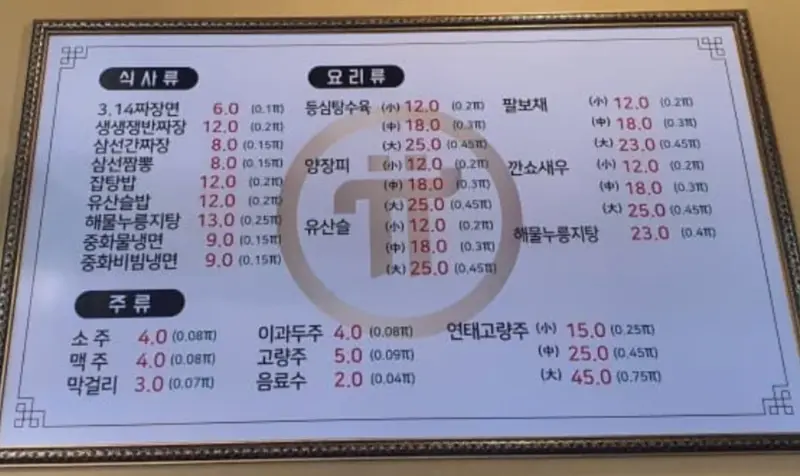 식사류
3.14짜장면 6.0 (0.1π)
생생쟁반짜장 12.0 (0.2π)
삼선간짜장 8.0 (0.15π)
삼선짬뽕 8.0 (0.15π)
잡탕밥 12.0 (0.2π)
유산슬밥 12.0 (0.2π)
해물누룽지탕 13.0 (0.25π)
중화물냉면 9.0 (0.15π)
중화비빔냉면 9.0 (0.15π)
요리류
등심탕수육 (小) 12.0 (0.2π)
(中) 18.0 (0.3π)
(大) 25.0 (0.45π)
양장피 (小) 12.0 (0.2π)
(中) 18.0 (0.3π)
(大) 25.0 (0.45π)
유산슬 (小) 12.0 (0.2π)
(中) 18.0 (0.3π)
(大) 25.0 (0.45π)
팔보채 (小) 12.0 (0.2π)
(中) 18.0 (0.3π)
(大) 23.0 (0.45π)
깐쇼새우 (小) 12.0 (0.2π)
(中) 18.0 (0.3π)
(大) 25.0 (0.45π)
해물누룽지탕 23.0 (0.4π)
주류
소주 4.0 (0.08π)
맥주 4.0 (0.08π)
막걸리 3.0 (0.07π)
이과두주 4.0 (0.08π)
고량주 5.0 (0.09π)
음료수 2.0 (0.04π)
연태고량주 (小) 15.0 (0.25π)
(中) 25.0 (0.45π)
(大) 45.0 (0.75π)